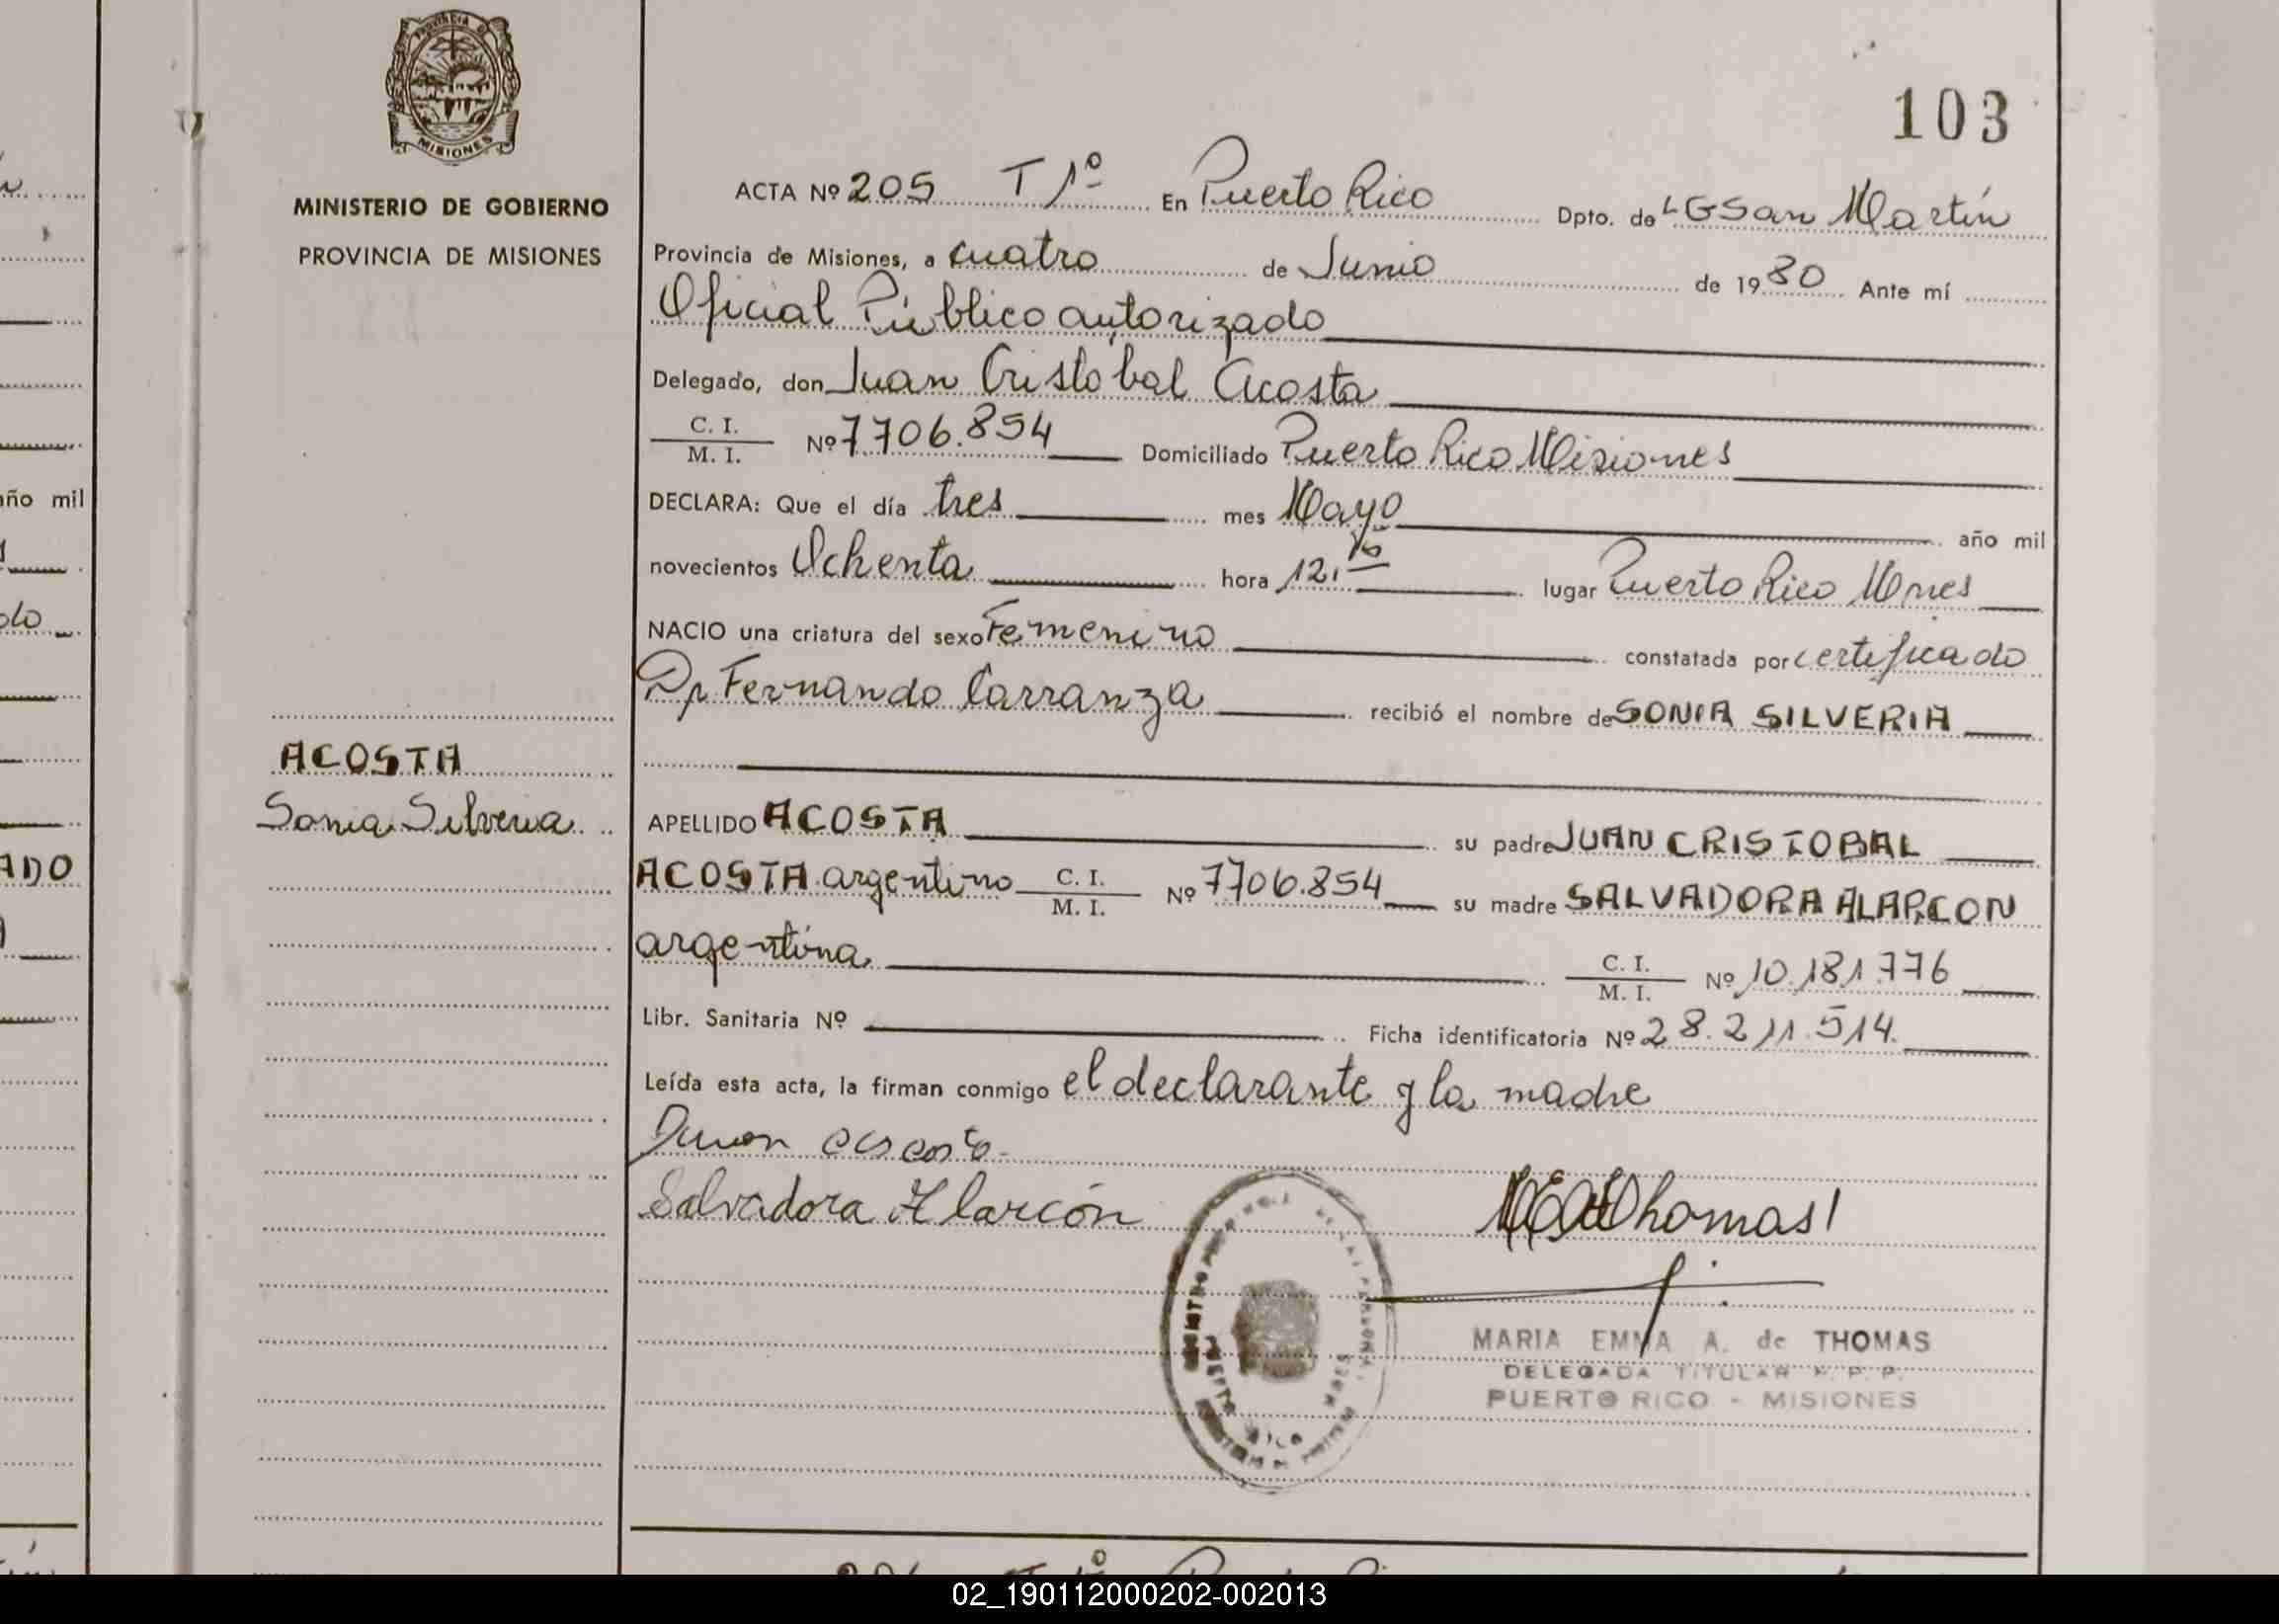 PROVINCIA DE
MISIONES
MINISTERIO DE GOBIERNO
PROVINCIA DE MISIONES
103
ACTA Nº 205 T 1º En Puerto Rico Dpto. de LGSan Martín
Provincia de Misiones, a cuatro de Junio de 1980 Ante mí
Oficial Público autorizado
Delegado, don Juan Cristobal Acosta
C. I.
M. I. Nº 7706.854 Domiciliado Puerto Rico Misiones
DECLARA: Que el día tres mes Mayo año mil
novecientos Ochenta hora 12, lugar Puerto Rico Mnes
NACIO una criatura del sexo Femenino constatada por certificado
Dr Fernando Carranza recibió el nombre de SONIA SILVERIA
ACOSTA
Sonia Silveria
APELLIDO ACOSTA su padre JUAN CRISTOBAL
ACOSTA argentino C. I.
M. I. Nº 7706.854 su madre SALVADORA ALARCON
argentina C. I.
M. I. Nº 10.181.776
Libr. Sanitaria Nº Ficha identificatoria Nº 28.211.514.
Leída esta acta, la firman conmigo el declarante y la madre
Salvadora Alarcón
Thomas
MARIA EMMA A. de THOMAS
DELEGADA TITULAR
PUERTO RICO - MISIONES
año mil
ADO
02_190112000202-002013